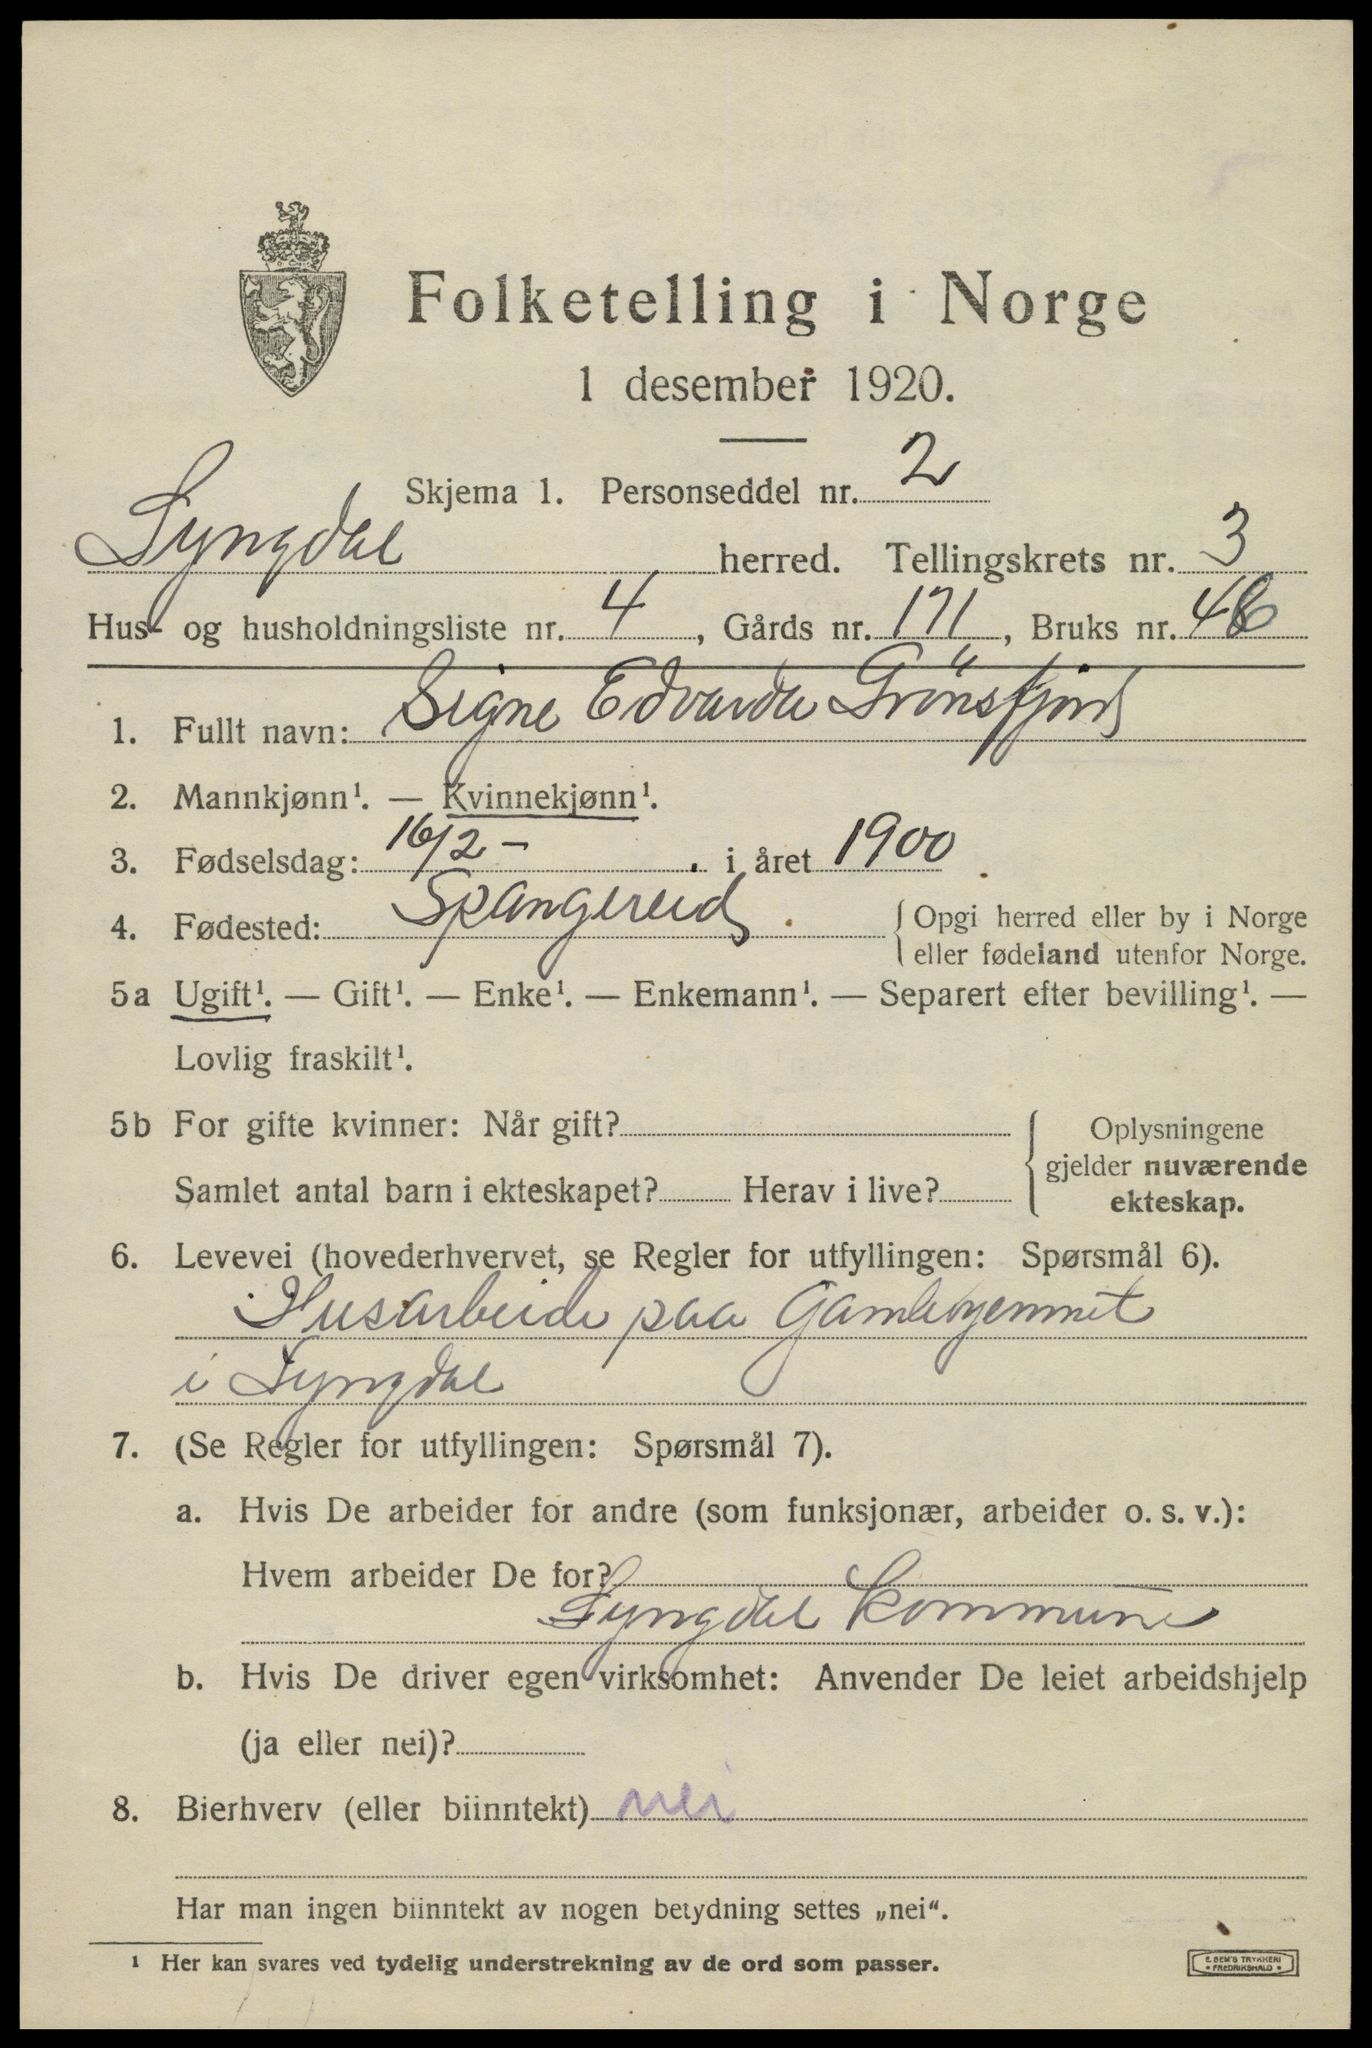 Folketelling i Norge
1 desember 1920.
Skjema 1. Personseddel nr. 2
Lyngdal herred. Tellingskrets nr. 3
Hus- og husholdningsliste nr. 4, Gårds nr. 171, Bruks nr.
1. Fullt navn: Signe Edvarda Grönsfjord
2. Mannkjønn¹. — Kvinnekjønn¹.
3. Fødselsdag: 16/2 - . i året 1900
4. Fødested: Spangereid. { Opgi herred eller by i Norge
eller fødeland utenfor Norge.
5a Ugift¹. — Gift¹. — Enke¹. — Enkemann¹. — Separert efter bevilling¹. —
Lovlig fraskilt¹.
5b For gifte kvinner: Når gift?
Samlet antal barn i ekteskapet? Herav i live?
Oplysningene
gjelder nuværende
ekteskap.
6. Levevei (hovederhvervet, se Regler for utfyllingen: Spørsmål 6).
Husarbeide paa Gamlehjemmet
i Lyngdal
7. (Se Regler for utfyllingen: Spørsmål 7).
a. Hvis De arbeider for andre (som funksjonær, arbeider o. s. v.):
Hvem arbeider De for?
Lyngdal kommune
b. Hvis De driver egen virksomhet: Anvender De leiet arbeidshjelp
(ja eller nei)?
8. Bierhverv (eller biinntekt) nei
Har man ingen biinntekt av nogen betydning settes „nei“.
¹ Her kan svares ved tydelig understrekning av de ord som passer.
E. SEM'S TRYKKERI
• FREDRIKSHALD •